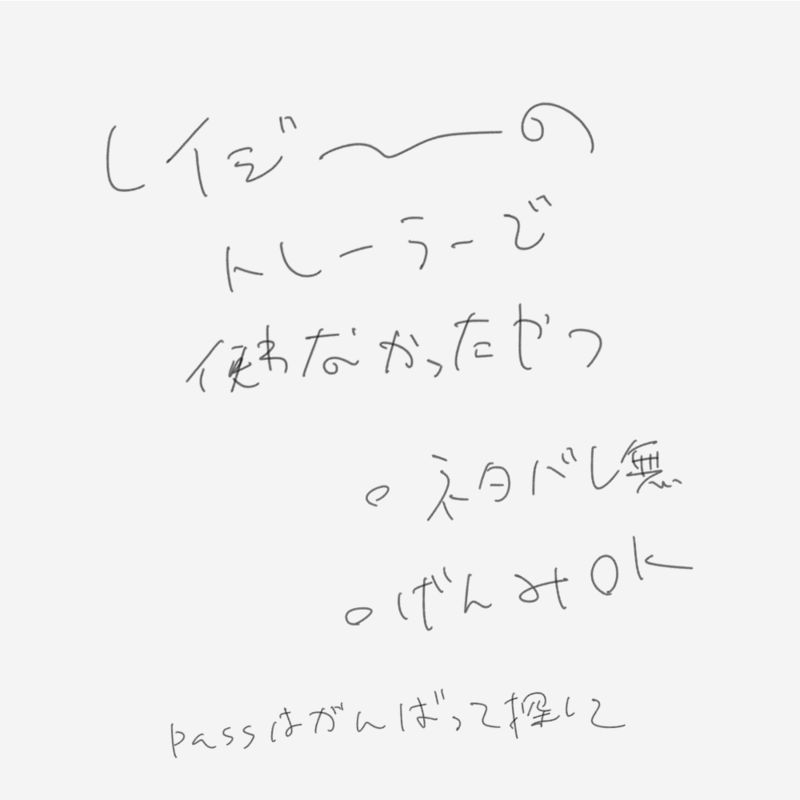 レイジ〜の
トレーラーで
使わなかったやつ
○ ネタバレ無
○ げんみOK
passはがんばって探して